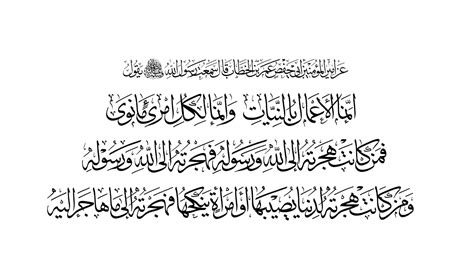 عن أمير المؤمنين أبي حفص عمر بن الخطاب قال سمعت رسول الله ﷺ يقول
إنما الأعمال بالنيات وإنما لكل امرئ ما نوى
فمن كانت هجرته إلى الله ورسوله فهجرته إلى الله ورسوله
ومن كانت هجرته لدنيا يصيبها أو امرأة ينكحها فهجرته إلى ما هاجر إليه